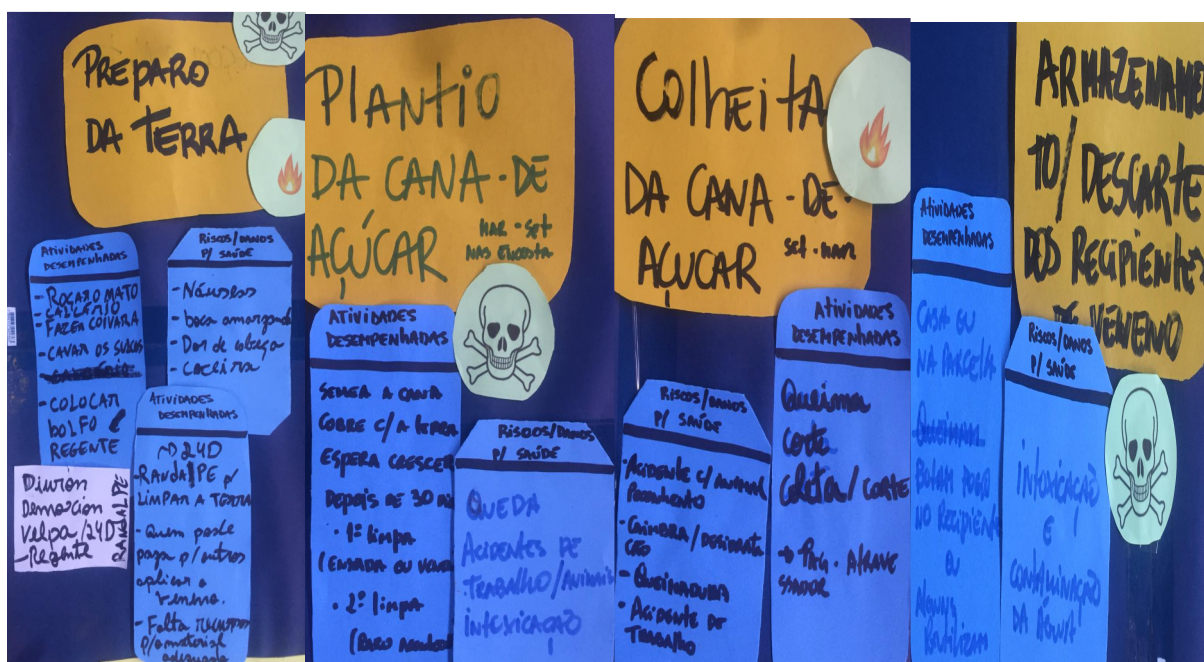 PREPARO
DA TERRA
ATIVIDADES
DESEMPENHADAS
- ROÇAR O MATO
- FAZER COIVARA
- CAVAR OS SULCOS
- COLOCAR
BOLFO
REGENTE
RISCOS/DANOS
P/ SAÚDE
- Náuseas
- boca amargando
- Dor de cabeça
- Coceira
ATIVIDADES
DESEMPENHADAS
24D
LIMPAR A TERRA
- Quem pode
paga p/ outros
aplicar o
- Falta
p/ material
adequado
Diuron
Velpa/24D
- Regente
RANDAL PE
PLANTIO
DA CANA-DE
AÇÚCAR
MAR - SET
NAS ENCOSTA
ATIVIDADES
DESEMPENHADAS
SEMEA A CANA
COBRE C/ A TERRA
ESPERA CRESCER
DEPOIS DE 30
• 1ª limpa
(ENXADA OU
• 2ª limpa
RISCOS/DANOS
P/ SAÚDE
QUEDA
ACIDENTES DE
TRABALHO/
INTOXICAÇÃO
Colheita
DA CANA-DE-
AÇUCAR
SET - MAR
RISCOS/DANOS
P/ SAÚDE
- ACIDENTE C/ ANIMAL
- QUEIMADURA
- ACIDENTE DE
TRABALHO
ATIVIDADES
DESEMPENHADAS
Queima
Corte
Coleta/CORTE
ARMAZENAME
TO/DESCARTE
DOS RECIPIENTES
DE VENENO
ATIVIDADES
DESEMPENHADAS
CASA OU
NA PARCELA
BOTAM FOGO
NO RECIPIENTE
OU
ALGUNS
REUTILIZAM
RISCOS/DANOS
P/ SAÚDE
INTOXICAÇÃO
E
CONTAMINAÇÃO
DA ÁGUA